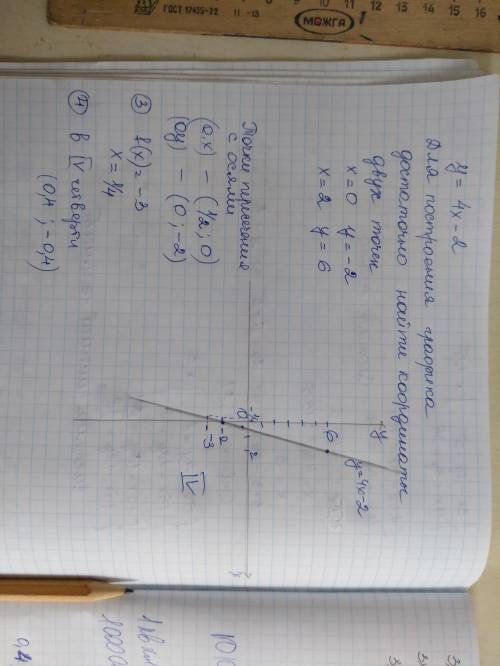 y = 4x - 2
Для построения графика
достаточно найти координаты
двух точек
x = 0 y = -2
x = 2 y = 6
Точки пересечения
с осями
(0,x) - (1/2; 0)
(0y) - (0; -2)
③ f(x) = -3
x = 1/4
④ в IV четверти
(0,4; -0,4)
y
6
y=4x-2
-1/4
0
2
-2
-3
IV
x
ГОСТ 17435-72
МОЖГА
10 11 12 13 14 15 16
10000
0,4